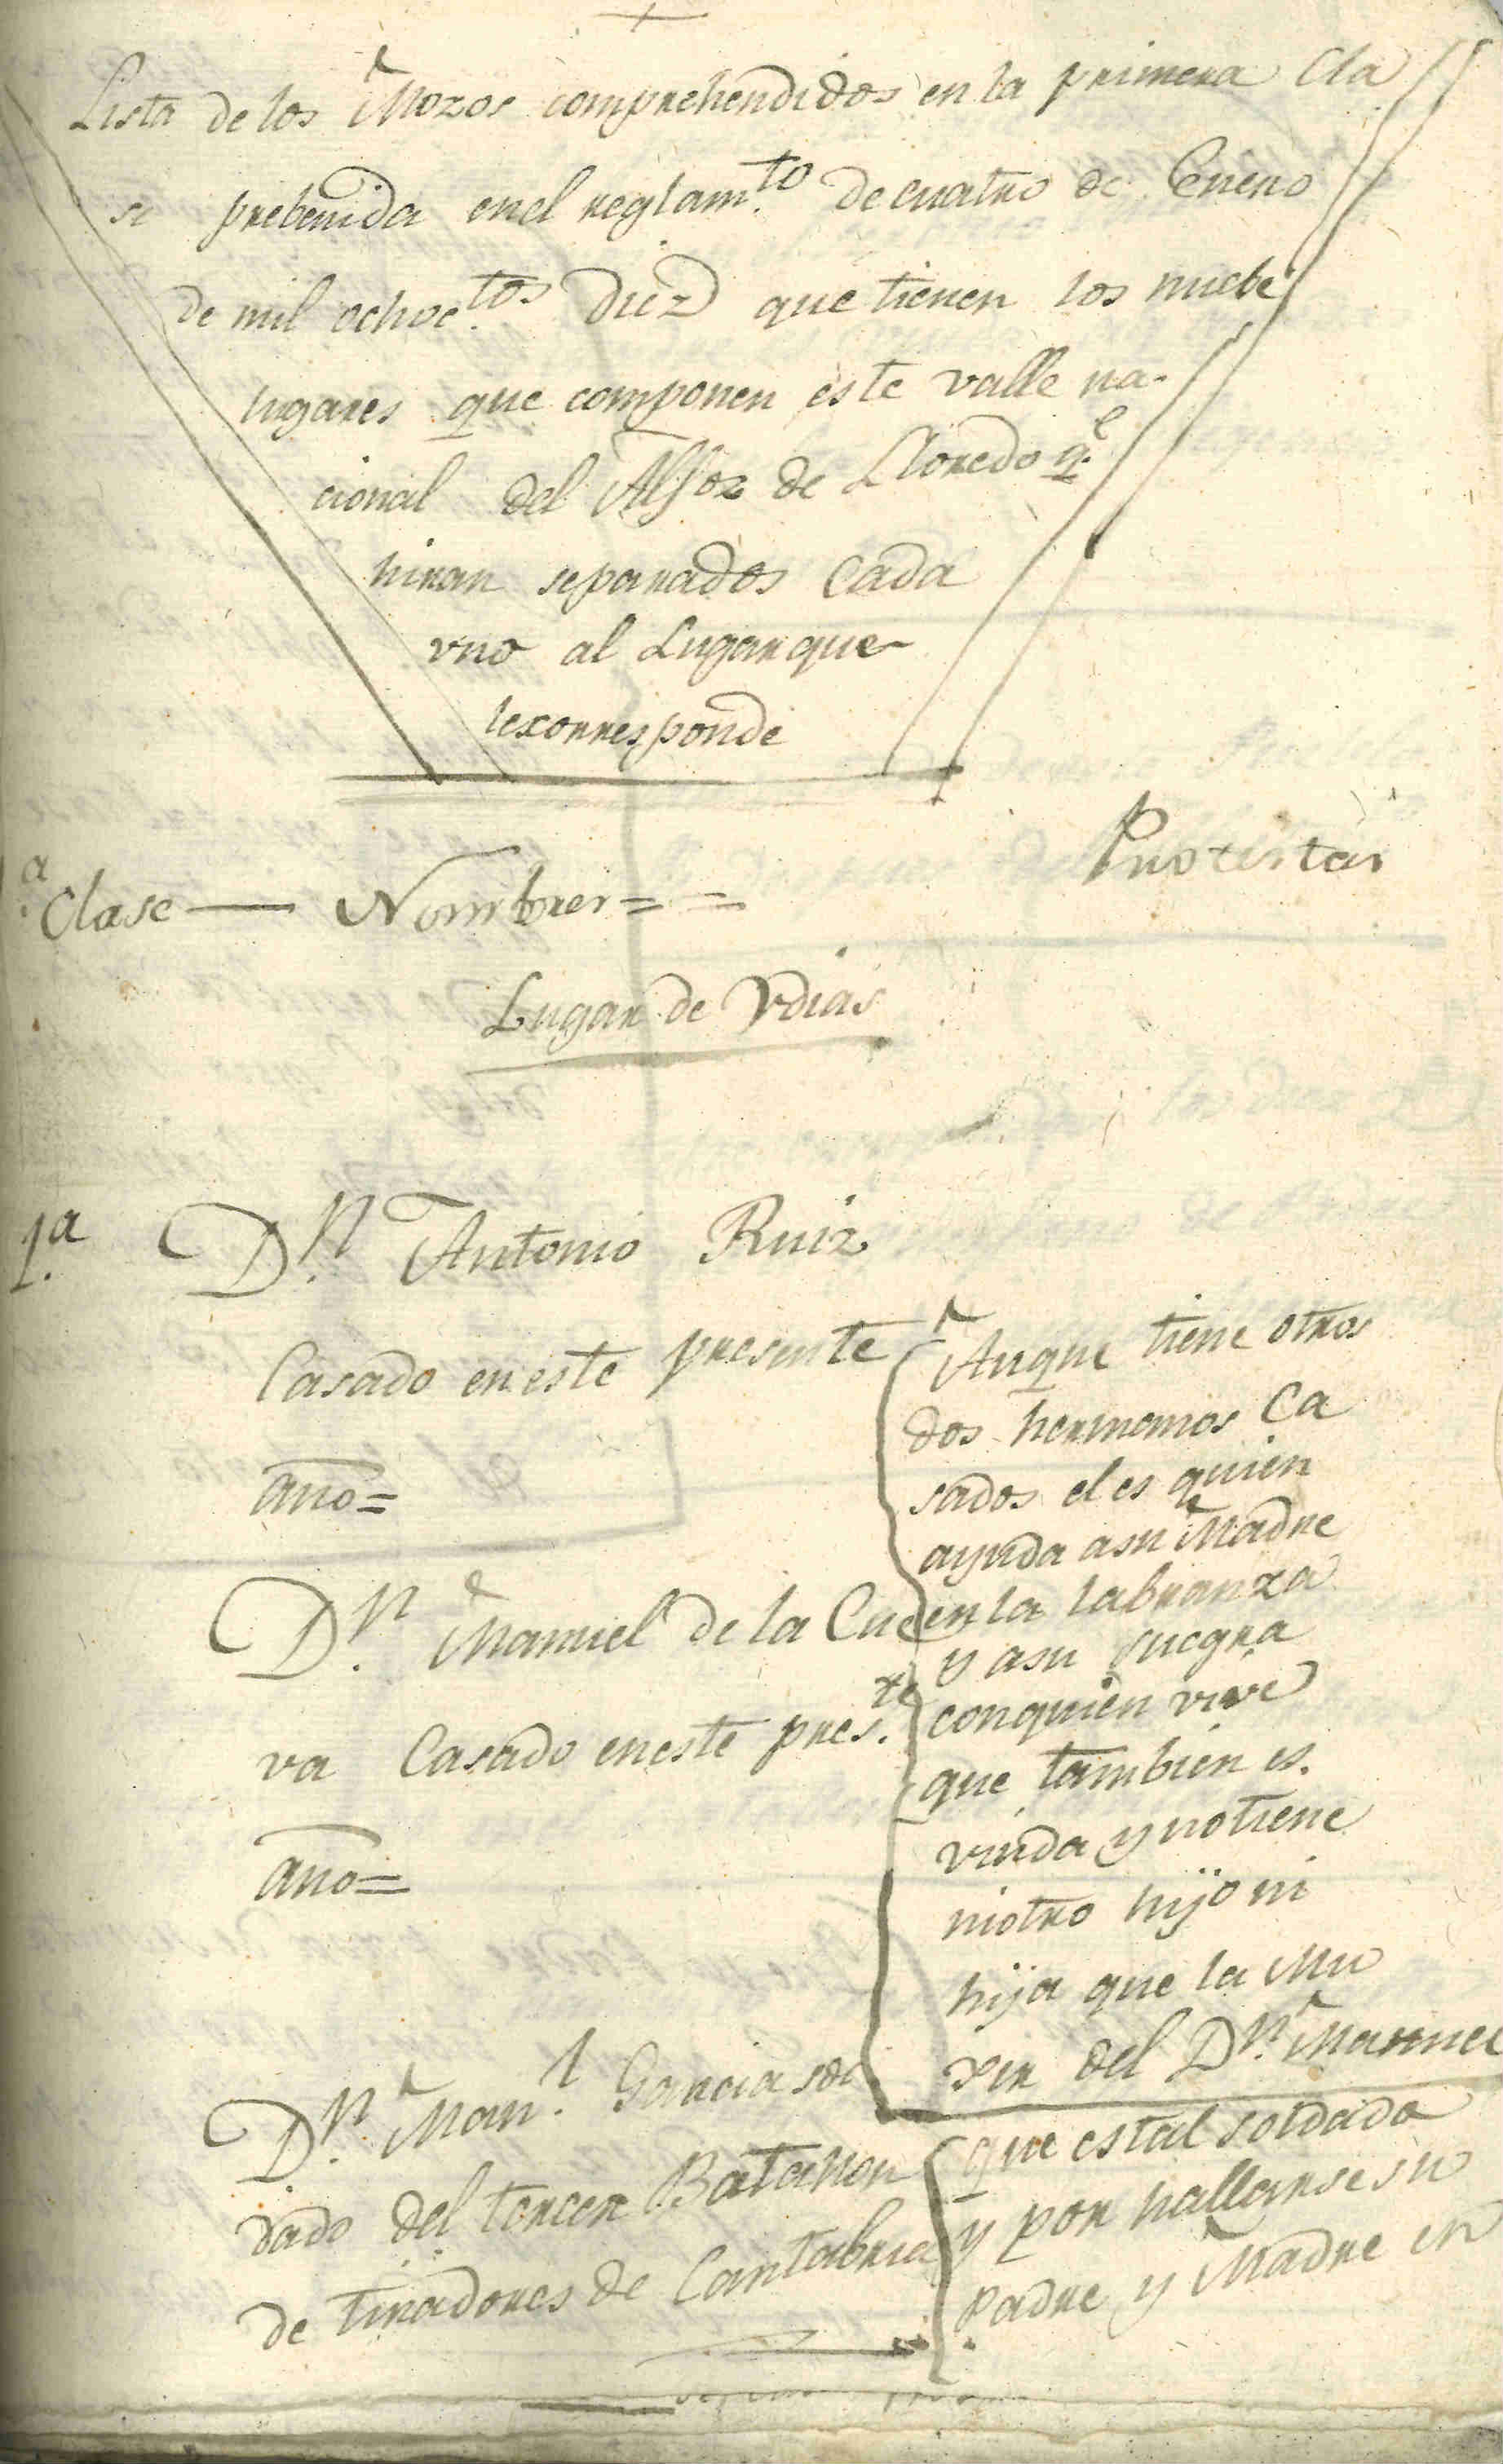 +
Lista de los Mozos comprehendidos en la primera Cla
se prebenida en el reglam.to de cuatro de Enero
de mil ochoc.tos diez que tienen los nuebe
lugares que componen este valle na-
cional del Alfoz de Lloredo q.e
hiran separados cada
vno al Lugar que
le corresponde
1.a Clase — Nombres = =
Protestas
Lugar de Vdias
1.a D.n Antonio Ruiz
Casado en este presente
año =
D.n Manuel de la Cue
va Casado en este pres.te
año =
Auque tiene otros
dos hermanos Ca
sados el es quien
ayuda a su Madre
en la labranza
y a su suegra
con quien vive
que tambien es
viuda y no tiene
ni otro hijo ni
hija que la Mu
xer del D.n Manuel
D.n Man.l Garcia sol
dado del tercer Batallon
de tiradores de Cantabria
que es tal soldado
y por hallarse su
Padre y Madre en